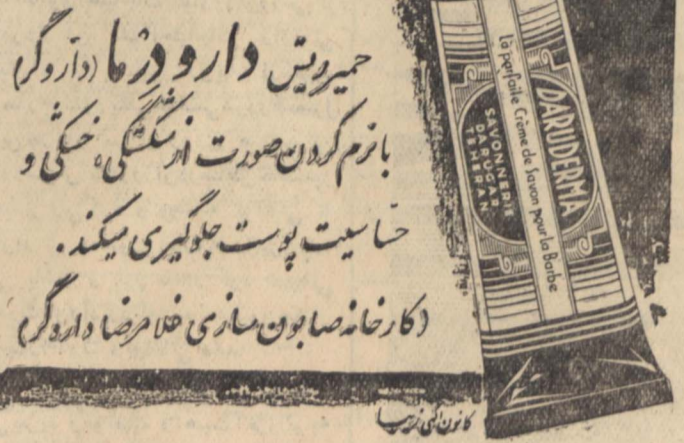 خمیرریش دارودِرْما (داروگر)
با نرم کردن صورت از شکستگی، خشکی و
حسّاسیت پوست جلوگیری میکند.
(کارخانه صابون سازی غلامرضا داروگر)
کانون آگهی زیبا
DARUDERMA
la parfaite Crème de Savon pour la Barbe
SAVONNERIE
DARUGAR
TEHERAN